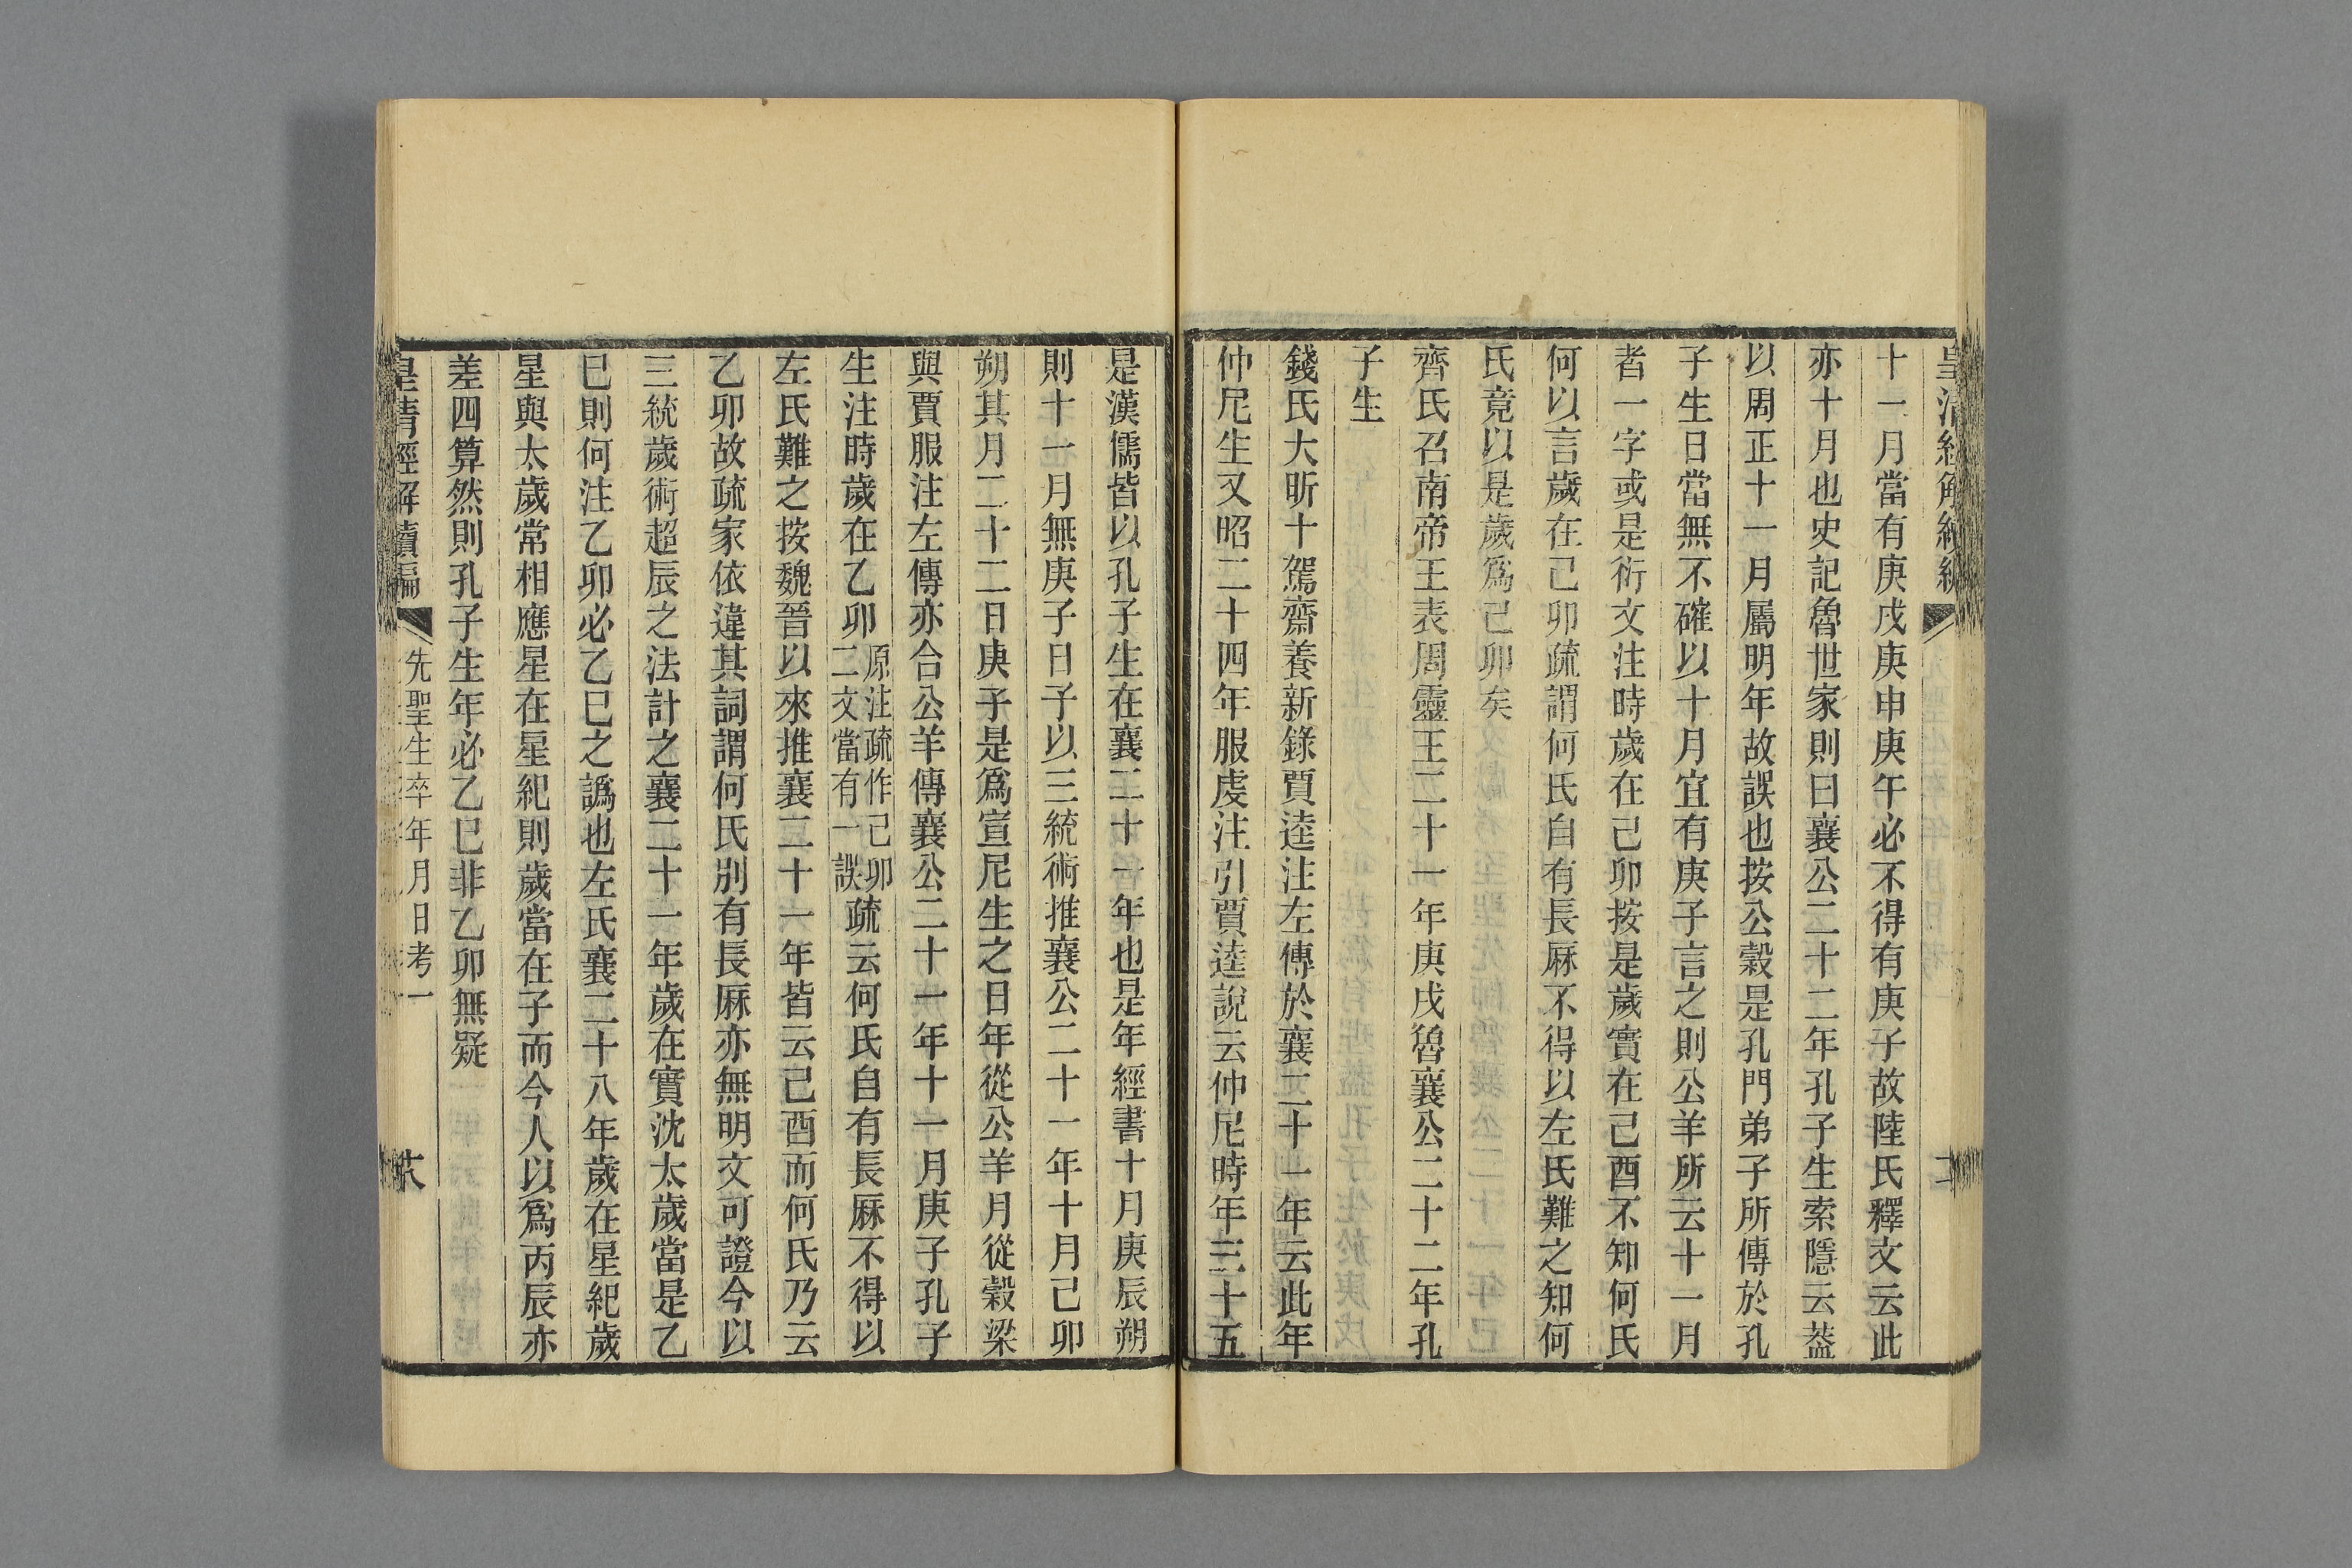 皇清經解續編
十一月當有庚戌庚申庚午必不得有庚子故陸氏釋文云此
亦十月也史記魯世家則曰襄公二十二年孔子生索隱云葢
以周正十一月屬明年故誤也按公穀是孔門弟子所傳於孔
子生日當無不確以十月宜有庚子言之則公羊所云十一月
者一字或是衍文注時歲在己卯按是歲實在己酉不知何氏
何以言歲在己卯疏謂何氏自有長厤不得以左氏難之知何
氏竟以是歲爲己卯矣
齊氏召南帝王表周靈王二十一年庚戌魯襄公二十二年孔
子生
錢氏大昕十駕齋養新錄賈逵注左傳於襄二十一年云此年
仲尼生又昭二十四年服虔注引賈逵說云仲尼時年三十五
是漢儒皆以孔子生在襄二十一年也是年經書十月庚辰朔
則十一月無庚子日子以三統術推襄公二十一年十月己卯
朔其月二十二日庚子是爲宣尼生之日年從公羊月從穀梁
與賈服注左傳亦合公羊傳襄公二十一年十一月庚子孔子
生注時歲在乙卯原注疏作己卯二文當有一誤疏云何氏自有長厤不得以
左氏難之按魏晉以來推襄二十一年皆云己酉而何氏乃云
乙卯故疏家依違其詞謂何氏別有長厤亦無明文可證今以
三統歲術超辰之法計之襄二十一年歲在實沈太歲當是乙
巳則何注乙卯必乙巳之譌也左氏襄二十八年歲在星紀歲
星與太歲常相應星在星紀則歲當在子而今人以爲丙辰亦
差四算然則孔子生年必乙巳非乙卯無疑
皇清經解續編 先聖生卒年月日考一